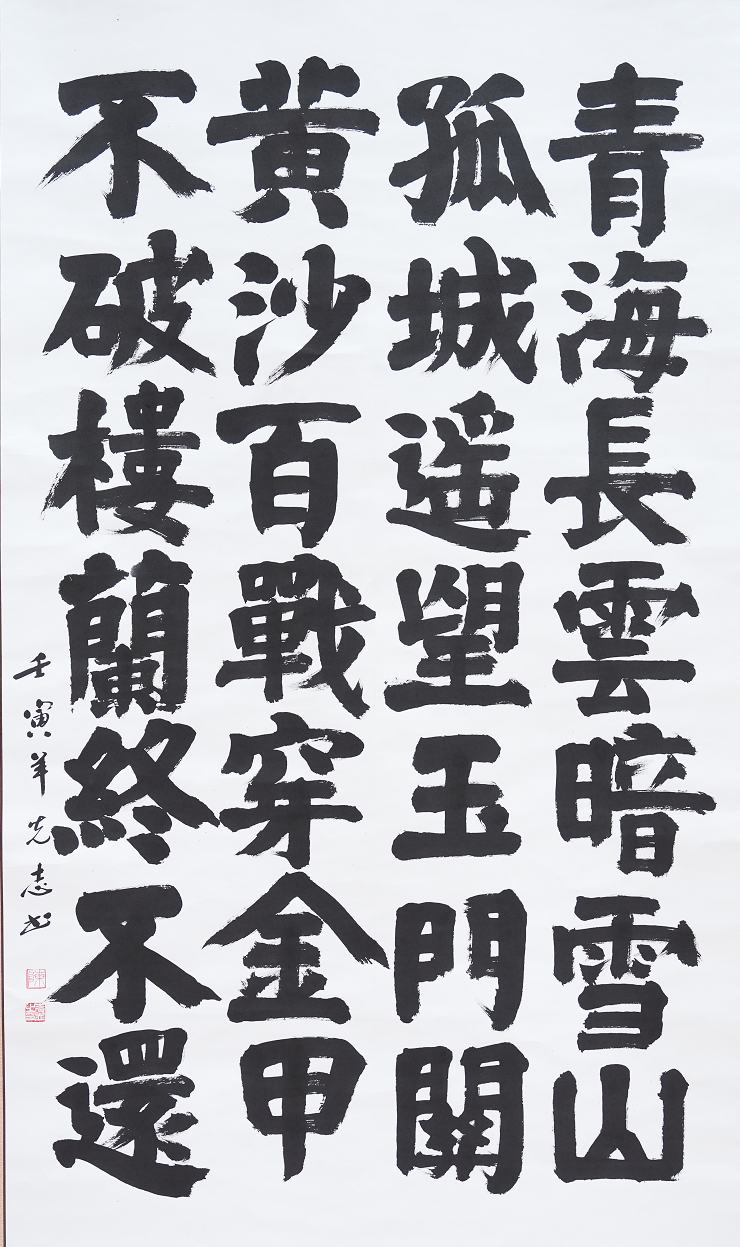 青海長雲暗雪山
孤城遥望玉門關
黄沙百戰穿金甲
不破樓蘭終不還
壬寅年先志书